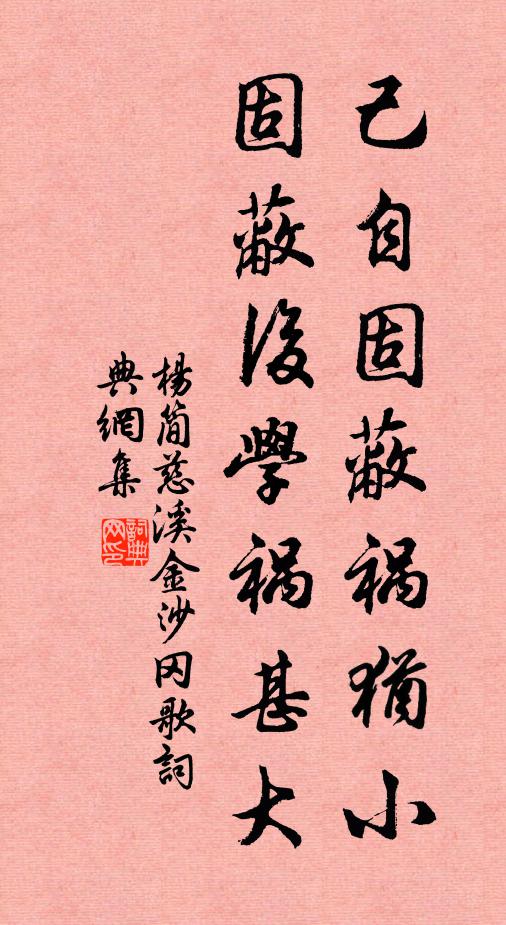 己自固蔽禍猶小
固蔽後學禍甚大
楊簡慈溪金沙冈歌詞
典網集
詞典
网印